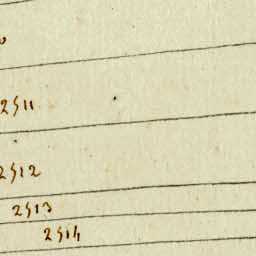 2511
2512
2513
2514